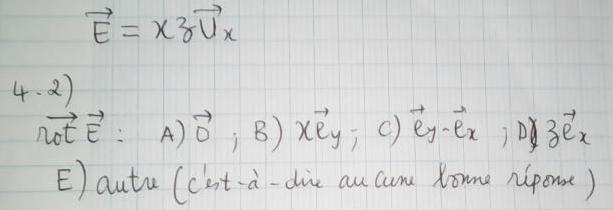 E⃗ = x z U⃗x
4-2)
rot⃗ E⃗ : A) 0⃗ ; B) x e⃗y ; C) e⃗y - e⃗x ; D) z e⃗x
E) autre (c'est-à-dire aucune bonne réponse)